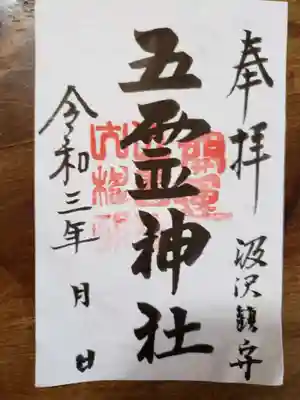 奉拝
汲沢鎮守
五霊神社
令和三年 月 日